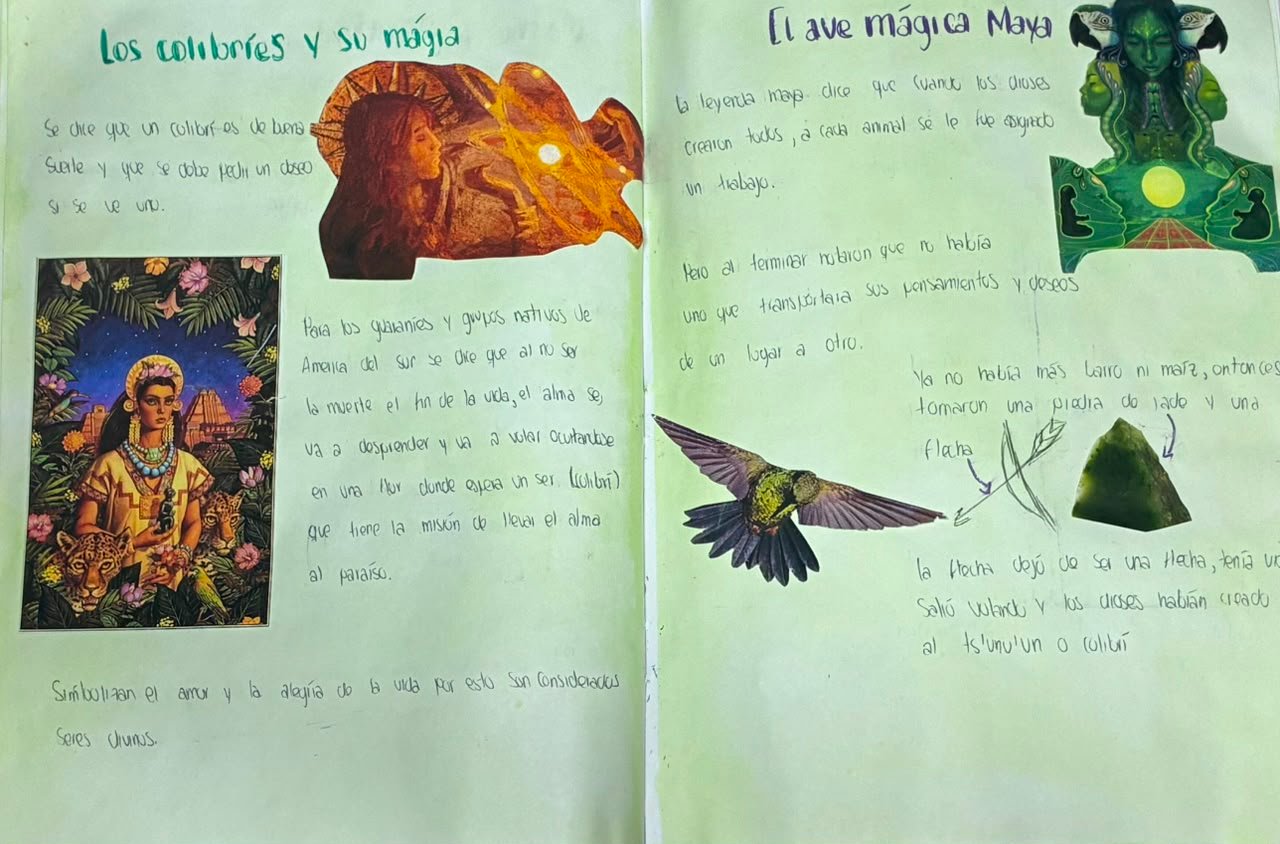 Los colibríes y su mágia
Se dice que un colibrí es de buena
suerte y que se debe pedir un deseo
si se ve uno.
Para los guaraníes y grupos nativos de
America del sur se dice que al no ser
la muerte el fin de la vida, el alma se
va a desprender y va a volar ocultandose
en una flor donde espera un ser (colibrí)
que tiene la misión de llevar el alma
al paraíso.
Simbolizan el amor y la alegría de la vida por esto son considerados
seres divinos.
El ave mágica Maya
la leyenda maya dice que cuando los dioses
crearon todos, a cada animal se le fue asignado
un trabajo.
Pero al terminar notaron que no había
uno que transportara sus pensamientos y deseos
de un lugar a otro.
Ya no había más barro ni maíz, entonces
tomaron una piedra de jade y una
flecha
la flecha dejó de ser una flecha, tenía
Salió volando y los dioses habían creado
al ts'unu'un o colibrí